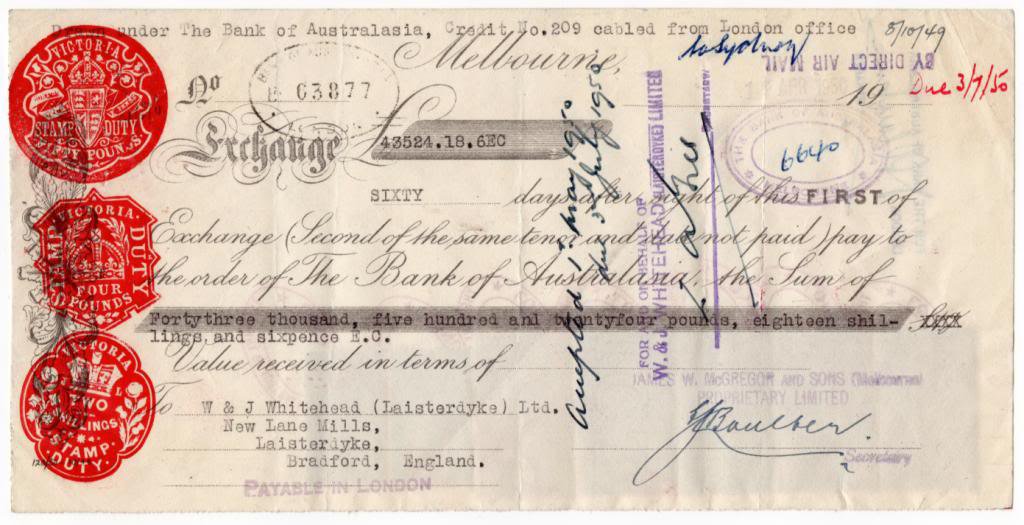 Drawn under The Bank of Australasia, Credit No.209 cabled from London office 8/10/49
Melbourne, to Sydney
BY DIRECT AIR MAIL
19
Due 3/7/50
No
63877
VICTORIA
STAMP DUTY
FIFTY POUNDS
Exchange
43524.18.6EC
THE BANK OF AUSTRALASIA
SIXTY days after sight of this FIRST of
Exchange (Second of the same tenor and date not paid) pay to
the order of The Bank of Australasia, the Sum of
VICTORIA
STAMP DUTY
FOUR POUNDS
Fortythree thousand, five hundred and twentyfour pounds, eighteen shil-
lings, and sixpence E.C.
Value received in terms of
VICTORIA
TWO
SHILLINGS
STAMP
DUTY.
To W & J Whitehead (Laisterdyke) Ltd.
New Lane Mills,
Laisterdyke,
Bradford, England.
PAYABLE IN LONDON
Accepted 1st May 1950
due 3rd July 1950
FOR & ON BEHALF OF
W. & J. WHITEHEAD (LAISTERDYKE) LIMITED
SECRETARY.
JAMES W. McGREGOR AND SONS (Melbourne)
PROPRIETARY LIMITED
Secretary